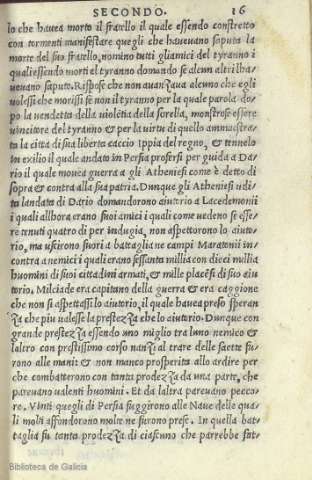 SECONDO. 16
lo che hauea morto il fratello il quale essendo constretto
con tormenti manifestare quegli che haueuano saputa la
morte del suo fratello, nomino tutti gli amici del tyranno i
quali essendo morti el tyranno domando se alcun altri ha-
ueuano saputo. Rispose che non auanzaua alcuno che egli
volessi che morissi se non il tyranno per la quale parola do-
po la vendetta della violētia della sorella, monstrose essere
vincitore del tyranno & per la virtu di quello ammaestra-
ta la citta di sua liberta caccio Ippia del regno, & tennelo
in exilio il quale andato in Persia proferfi per guida a Da-
rio il quale mouea guerra a gli Atheniesi come è detto di
sopra & contra alla sua patria. Dunque gli Atheniesi vdi-
ta landata di Dario domandorono aiutorio a Lacedemonii
i quali allhora erano suoi amici i quali come uedeno se esse-
re tenuti quatro di per indugia, non aspettorono lo aiuto-
rio, ma vscirono fuori a battaglia ne campi Maratonii in-
contra a nemici i quali erano sessanta millia con dieci millia
huomini di suoi cittadini armati, & mille placēsi di suo aiu
torio. Milciade era capitano della guerra & era caggione
che non si aspettassi lo aiutorio, il quale hauea preso speran
za che piu ualesse la prestezza che lo aiutorio. Dunque con
grande prestezza essendo uno miglio tra luno nemico &
laltro con prestissimo corso nanzi al trare delle saette fu-
rono alle mani: & non manco prosperita allo ardire per
che combatterono con tanta prodezza da una parte, che
pareuano ualenti huomini. Et da laltra pareuano pecco-
re. Vinti quegli di Persia fuggirono alle Naue delle qua-
li molti affondarono molte ne furono prese. In quella bat-
taglia fu tanta prodezza di ciascuno che parrebbe fati-
Biblioteca de Galicia